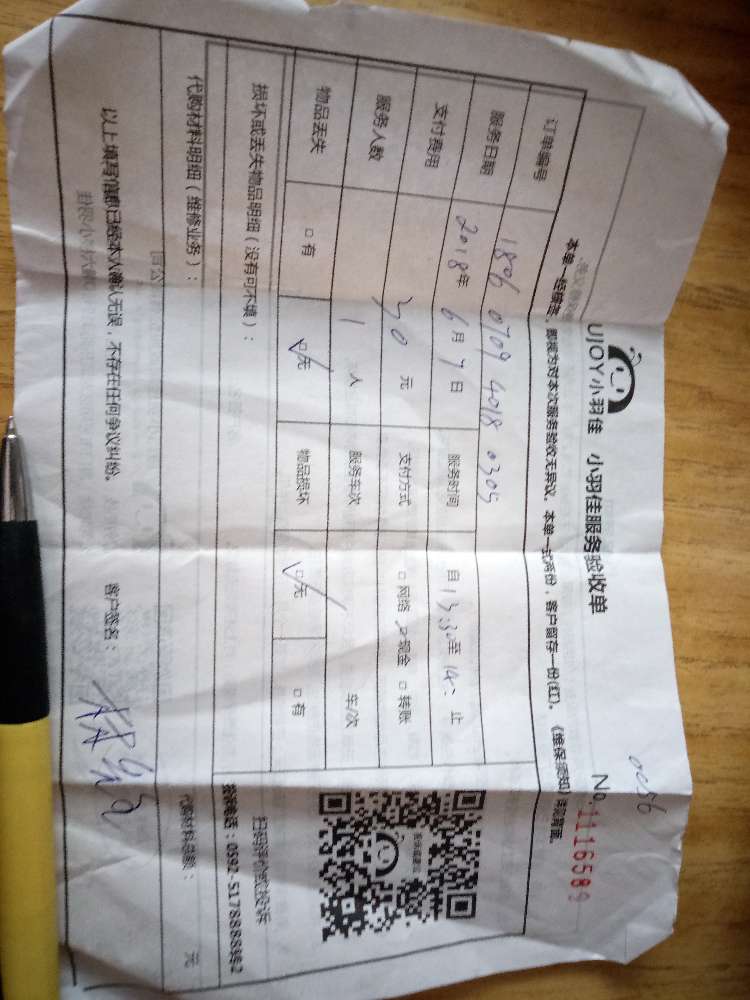 0056
UJOY小羽佳 小羽佳服务验收单 No.1116589
本单一经接签,即视为对本次服务验收无异议。本单一式两份,客户留存一份(红)。《维保须知》详见背面。
订单编号 1806 0709 4018 0305
服务日期 2018年 6月 7日 服务时间 自 13:30 至 14: 止
支付费用 30 元 支付方式 □网络 ☑现金 □转账
服务人数 1 人 服务车次 车/次
物品丢失 □有 ☑无 物品损坏 ☑无 □有
损坏或丢失物品明细(没有可不填):
扫码评价或投诉
投诉电话:0592-5178888转2
代购材料明细(维修业务): 代购材料总额: 元
以上填写信息已经本人确认无误,不存在任何争议纠纷。 客户签名: